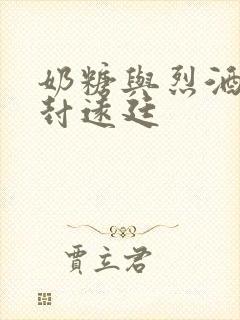 奶糖與烈酒
封遠廷
賈立君